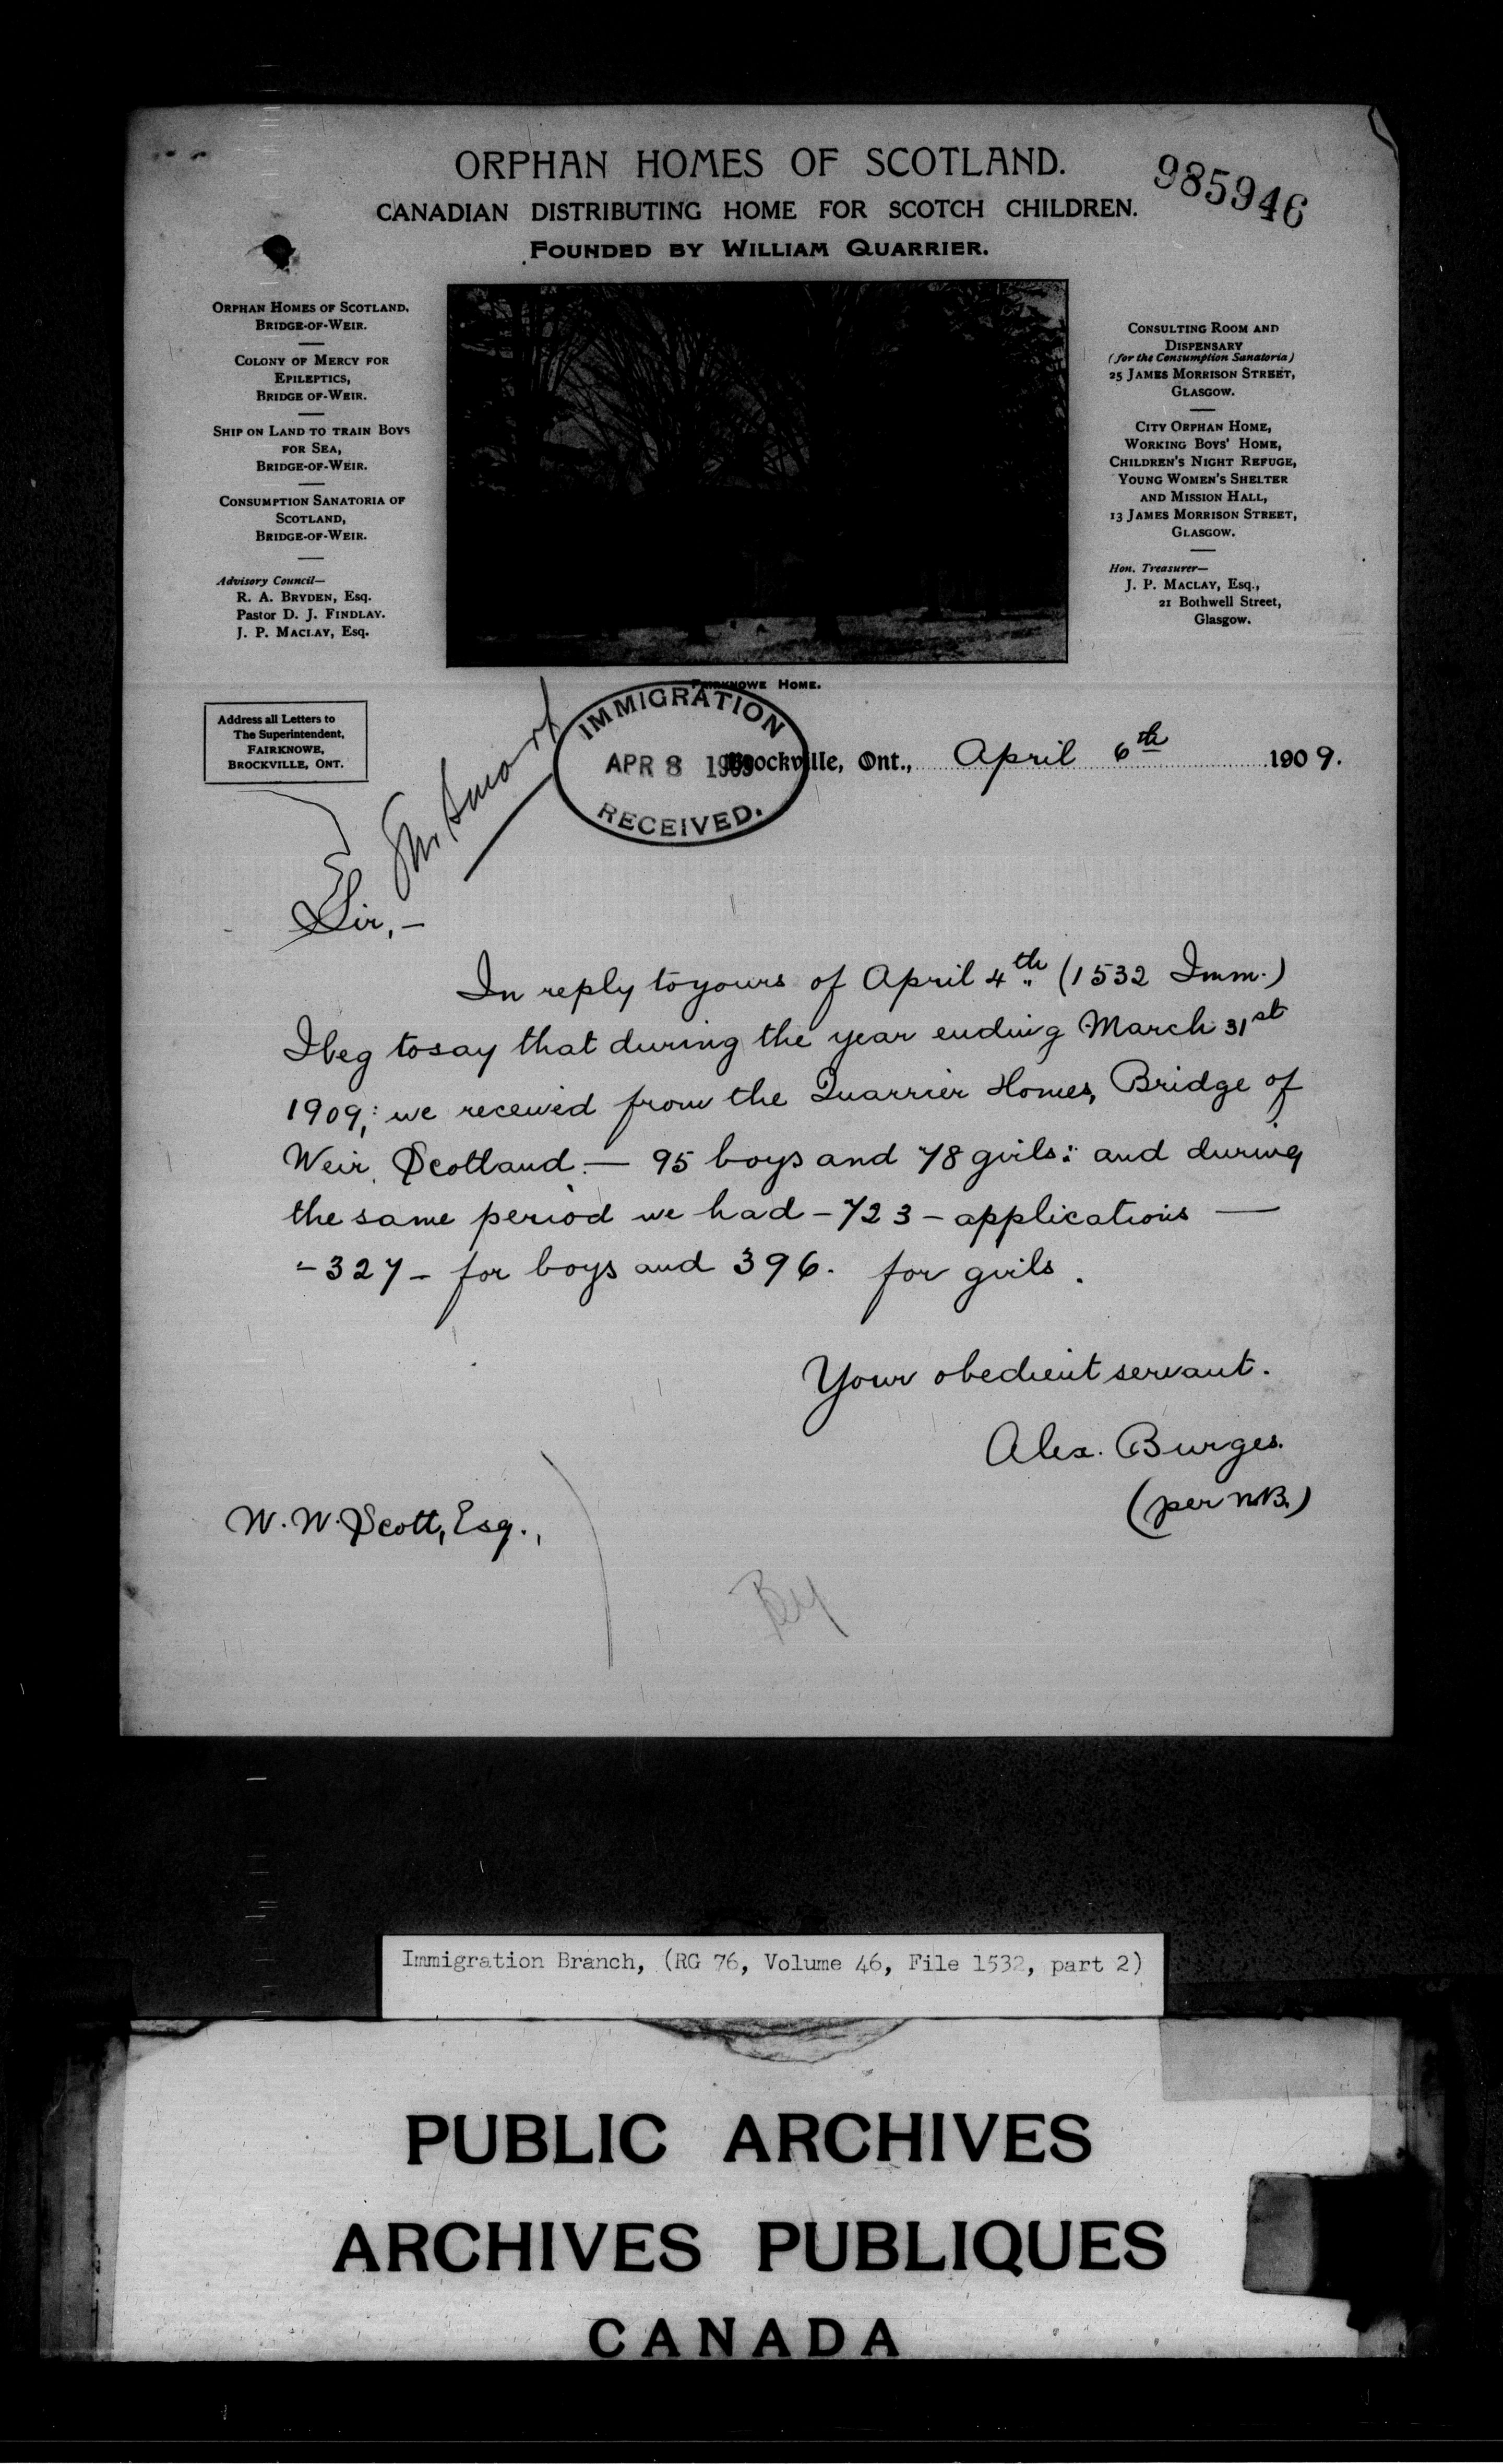 ORPHAN HOMES OF SCOTLAND.
985946
CANADIAN DISTRIBUTING HOME FOR SCOTCH CHILDREN.
FOUNDED BY WILLIAM QUARRIER.
ORPHAN HOMES OF SCOTLAND,
BRIDGE-OF-WEIR.
COLONY OF MERCY FOR
EPILEPTICS,
BRIDGE OF-WEIR.
SHIP ON LAND TO TRAIN BOYS
FOR SEA,
BRIDGE-OF-WEIR.
CONSUMPTION SANATORIA OF
SCOTLAND,
BRIDGE-OF-WEIR.
Advisory Council—
R. A. BRYDEN, Esq.
Pastor D. J. FINDLAY.
J. P. MACLAY, Esq.
CONSULTING ROOM AND
DISPENSARY
(for the Consumption Sanatoria)
25 JAMES MORRISON STREET,
GLASGOW.
CITY ORPHAN HOME,
WORKING BOYS' HOME,
CHILDREN'S NIGHT REFUGE,
YOUNG WOMEN'S SHELTER
AND MISSION HALL,
13 JAMES MORRISON STREET,
GLASGOW.
Hon. Treasurer—
J. P. MACLAY, Esq.,
21 Bothwell Street,
Glasgow.
FAIRKNOWE HOME.
Address all Letters to
The Superintendent,
FAIRKNOWE,
BROCKVILLE, ONT.
IMMIGRATION
APR 8 1909
RECEIVED.
Brockville, Ont., April 6th 1909.
Sir,—
In reply to yours of April 4th (1532 Imm.)
I beg to say that during the year ending March 31st
1909; we received from the Quarrier Homes, Bridge of
Weir, Scotland.— 95 boys and 78 girls: and during
the same period we had – 723 – applications —
– 327 – for boys and 396. for girls.
Your obedient servant.
Alex. Burges.
(per N.B.)
W. W. Scott, Esq.,
Immigration Branch, (RG 76, Volume 46, File 1532, part 2)
PUBLIC ARCHIVES
ARCHIVES PUBLIQUES
CANADA